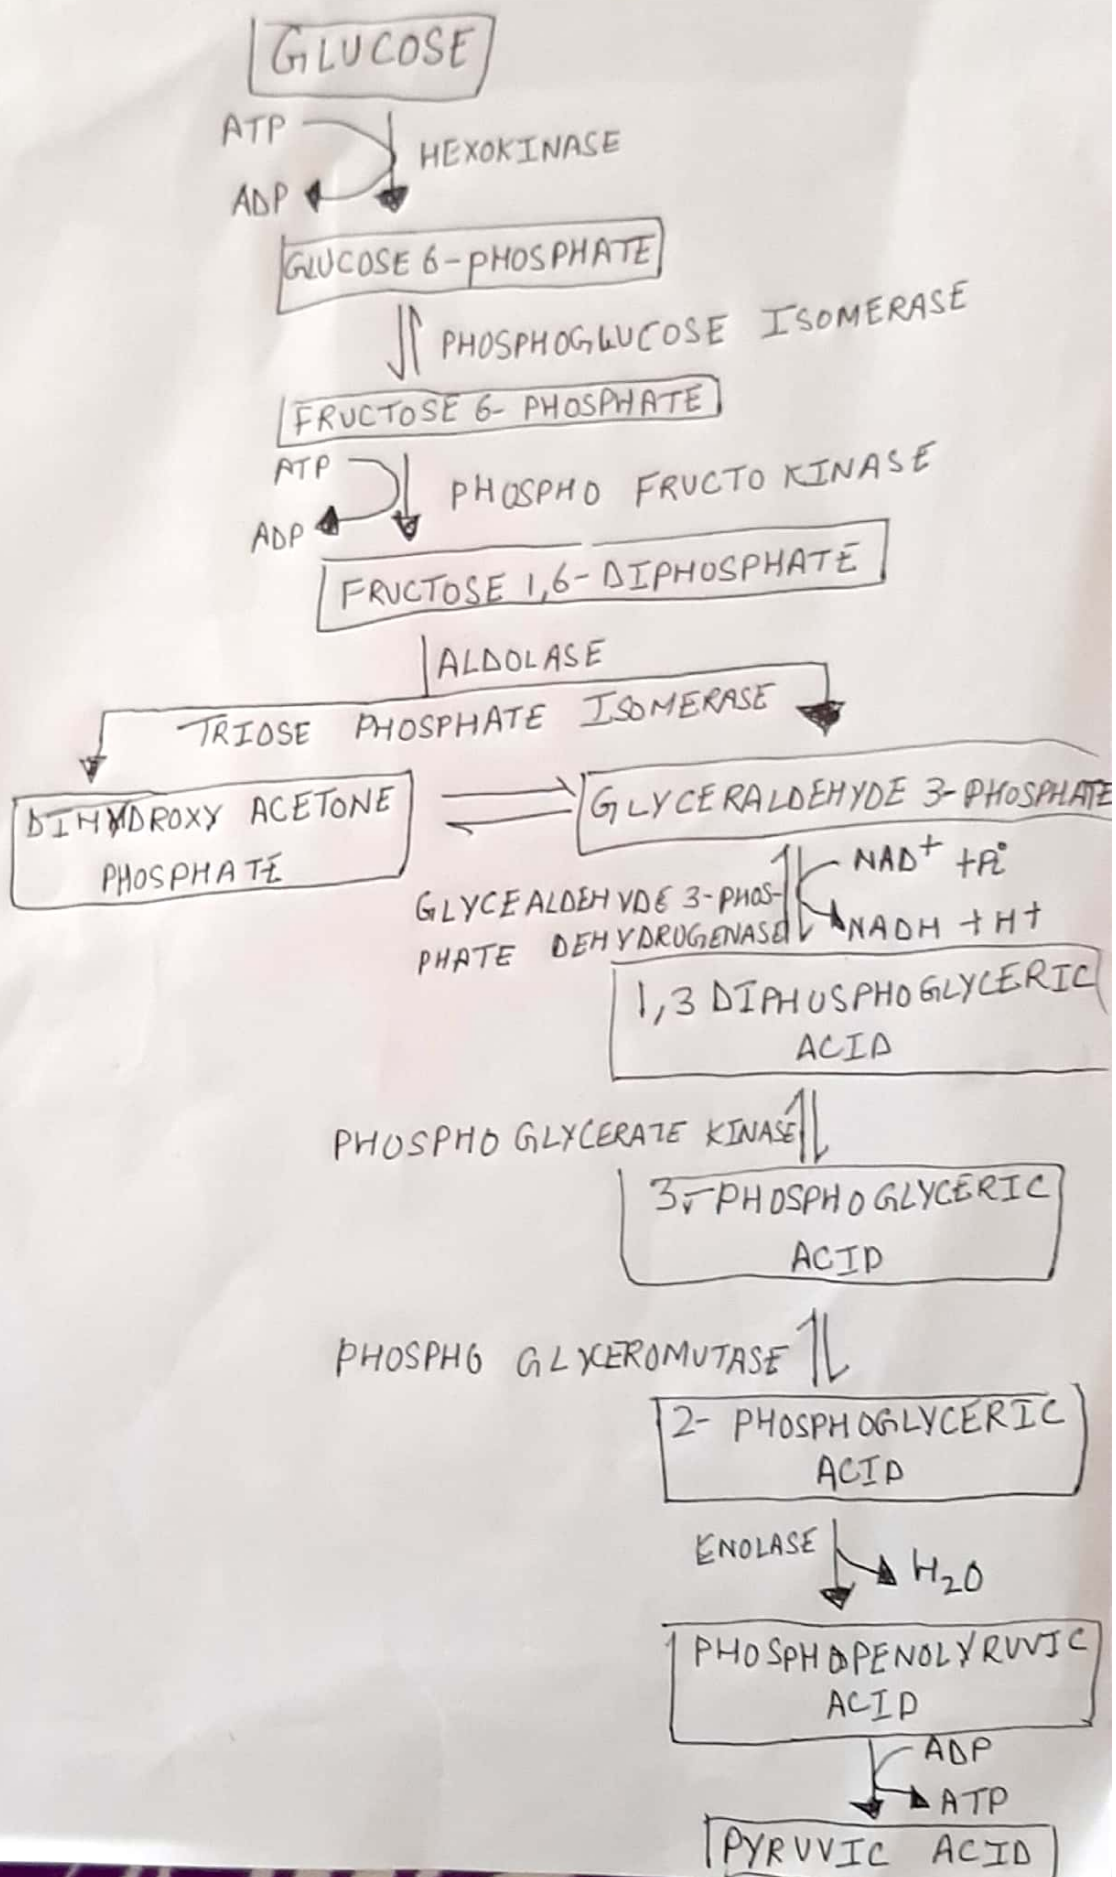 GLUCOSE
ATP
HEXOKINASE
ADP
GLUCOSE 6-PHOSPHATE
PHOSPHOGLUCOSE ISOMERASE
FRUCTOSE 6- PHOSPHATE
ATP
PHOSPHO FRUCTO KINASE
ADP
FRUCTOSE 1,6-DIPHOSPHATE
ALDOLASE
TRIOSE PHOSPHATE ISOMERASE
DIHYDROXY ACETONE
PHOSPHATE
GLYCERALDEHYDE 3-PHOSPHATE
NAD+ +Pi
GLYCEALDEHYDE 3-PHOS-
PHATE DEHYDROGENASE
NADH + H+
1,3 DIPHOSPHOGLYCERIC
ACID
PHOSPHO GLYCERATE KINASE
3-PHOSPHOGLYCERIC
ACID
PHOSPHO GLYCEROMUTASE
2- PHOSPHOGLYCERIC
ACID
ENOLASE
H2O
PHOSPHOPENOLYRUVIC
ACID
ADP
ATP
PYRUVIC ACID